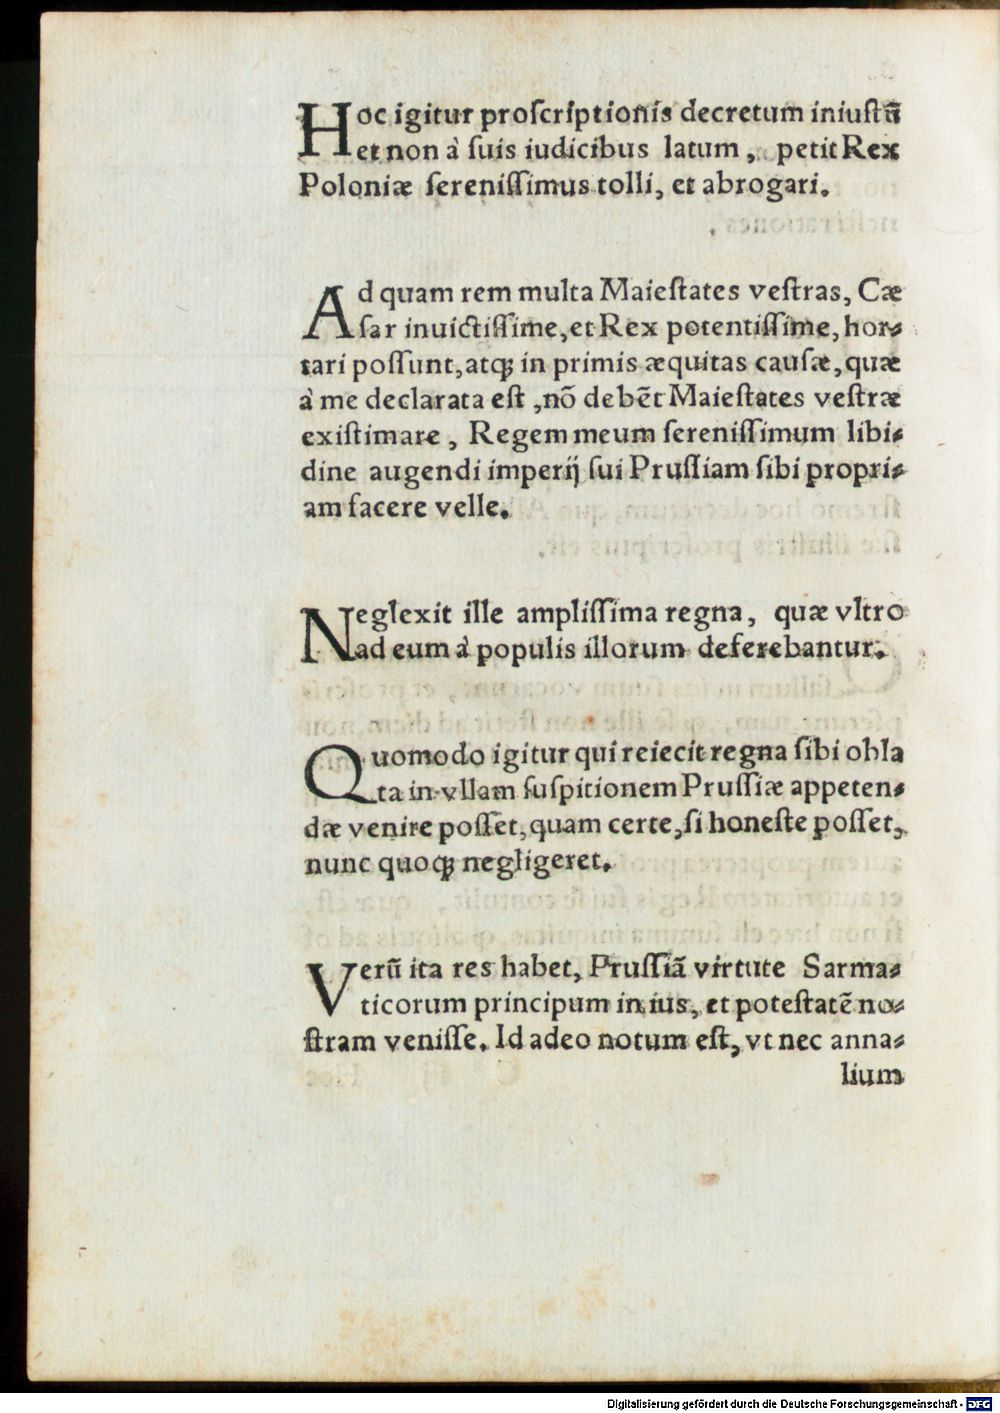 Hoc igitur proſcriptionis decretum iniuſtũ
et non à ſuis iudicibus latum, petit Rex
Poloniæ ſereniſſimus tolli, et abrogari.
Ad quam rem multa Maieſtates veſtras, Cæ
ſar inuictiſſime, et Rex potentiſſime, hor⸗
tari poſſunt, atqꝫ in primis æquitas cauſæ, quæ
à me declarata eſt, nõ debẽt Maieſtates veſtræ
exiſtimare, Regem meum ſereniſſimum libi⸗
dine augendi imperij ſui Pruſſiam ſibi propri⸗
am facere velle.
Neglexit ille ampliſſima regna, quæ vltro
ad eum à populis illorum deferebantur.
Quomodo igitur qui reiecit regna ſibi obla
ta in vllam ſuſpitionem Pruſſiæ appeten⸗
dæ venire poſſet, quam certe, ſi honeſte poſſet,
nunc quoqꝫ negligeret.
Verũ ita res habet, Pruſſiã virtute Sarma⸗
ticorum principum in ius, et poteſtatẽ no⸗
ſtram veniſſe. Id adeo notum eſt, vt nec anna⸗
lium
Digitalisierung gefördert durch die Deutsche Forschungsgemeinschaft - DFG